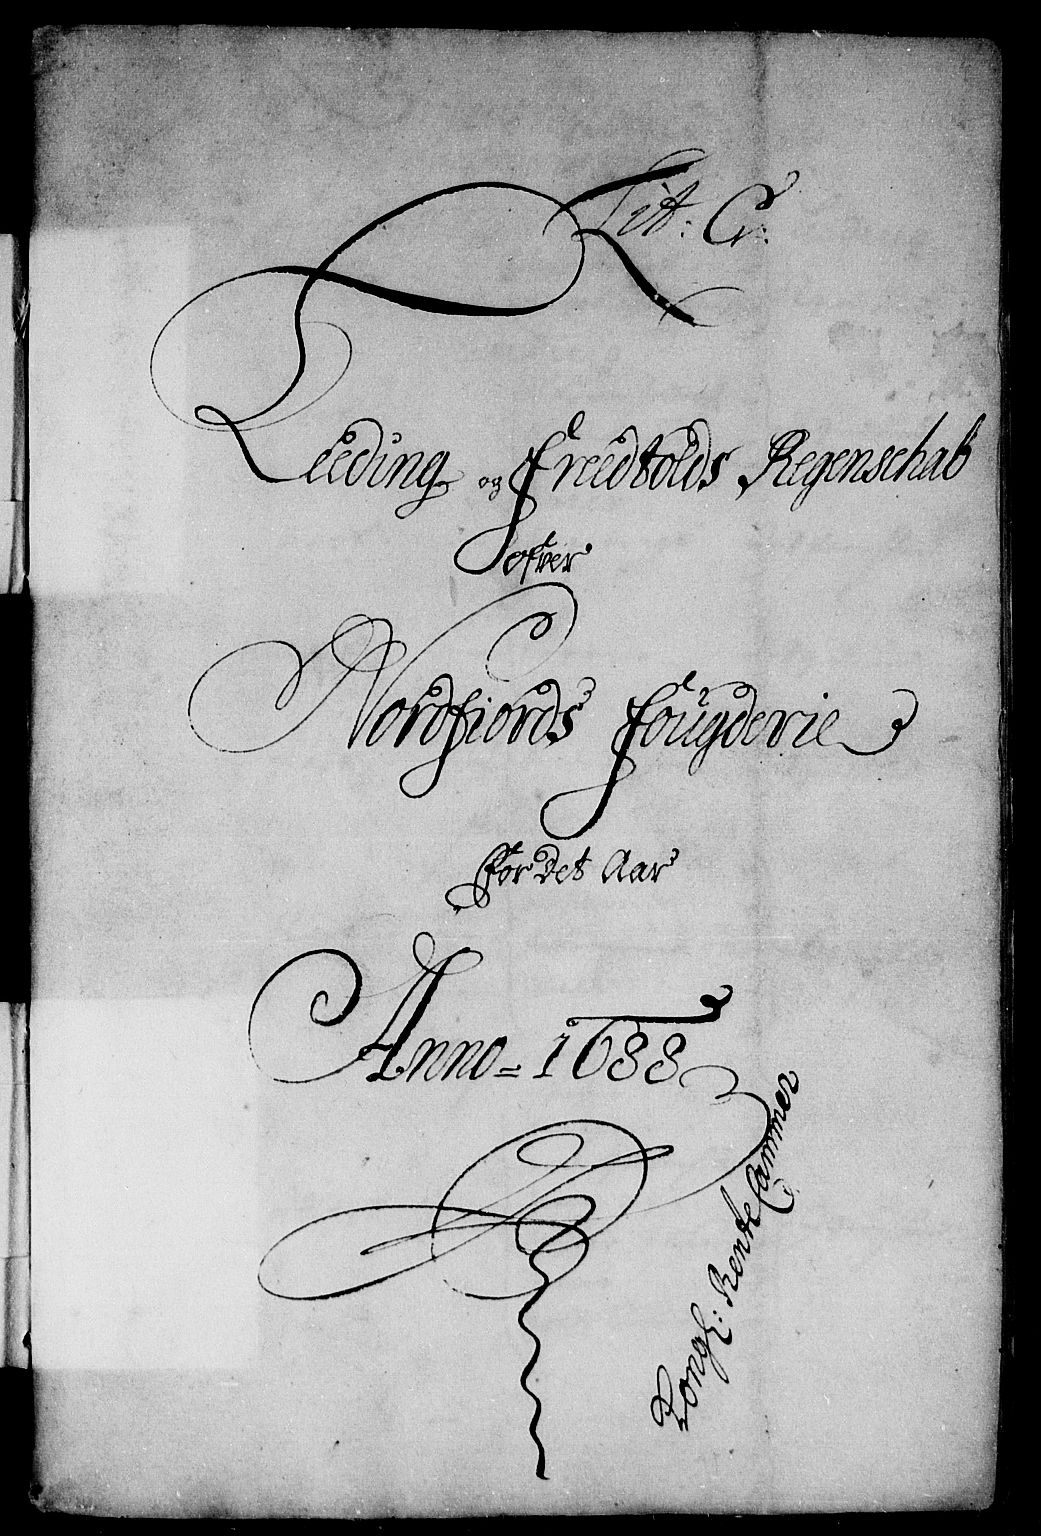 Lit: C:
Leeding og freedtolds Regenschab
ofver
Nordfiords fougderie
for det Aar
Anno = 1688
Kongl: Rente Cammer